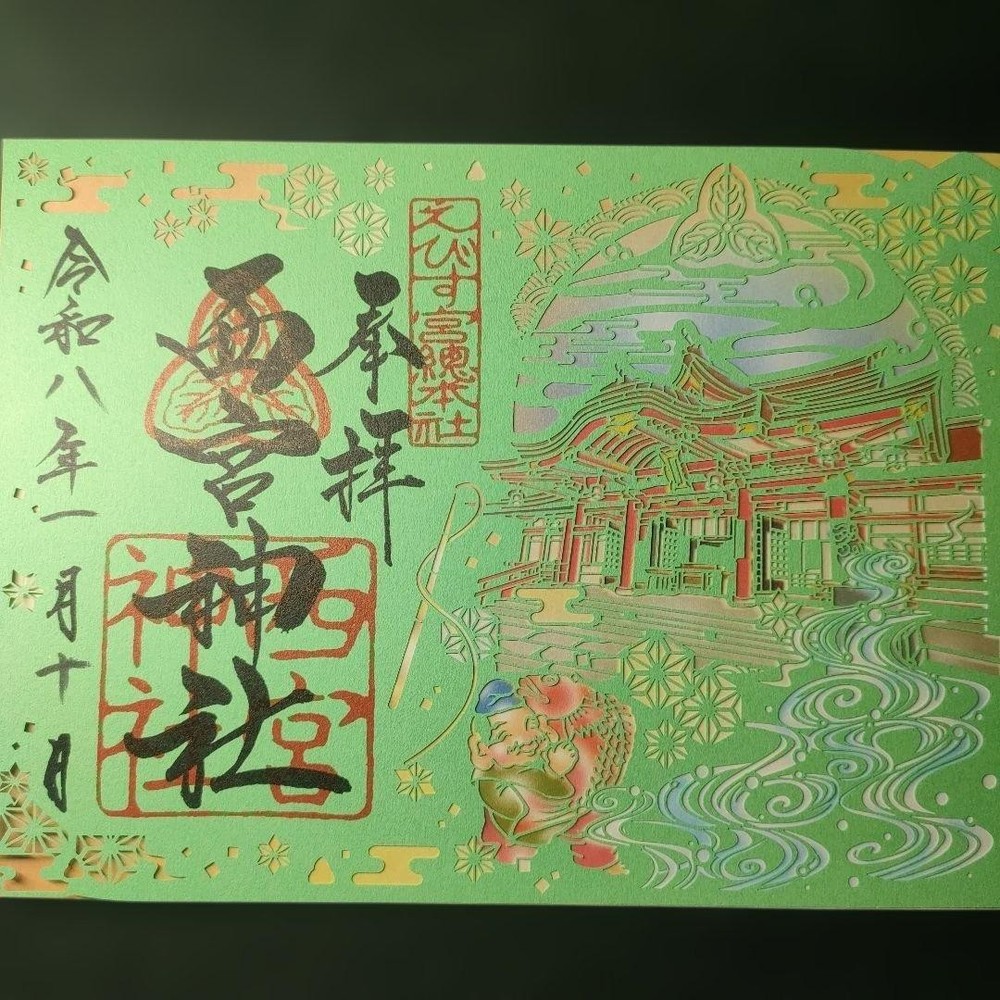 えびす宮總本社
奉拝
西宮神社
西宮神社
令和八年一月十日